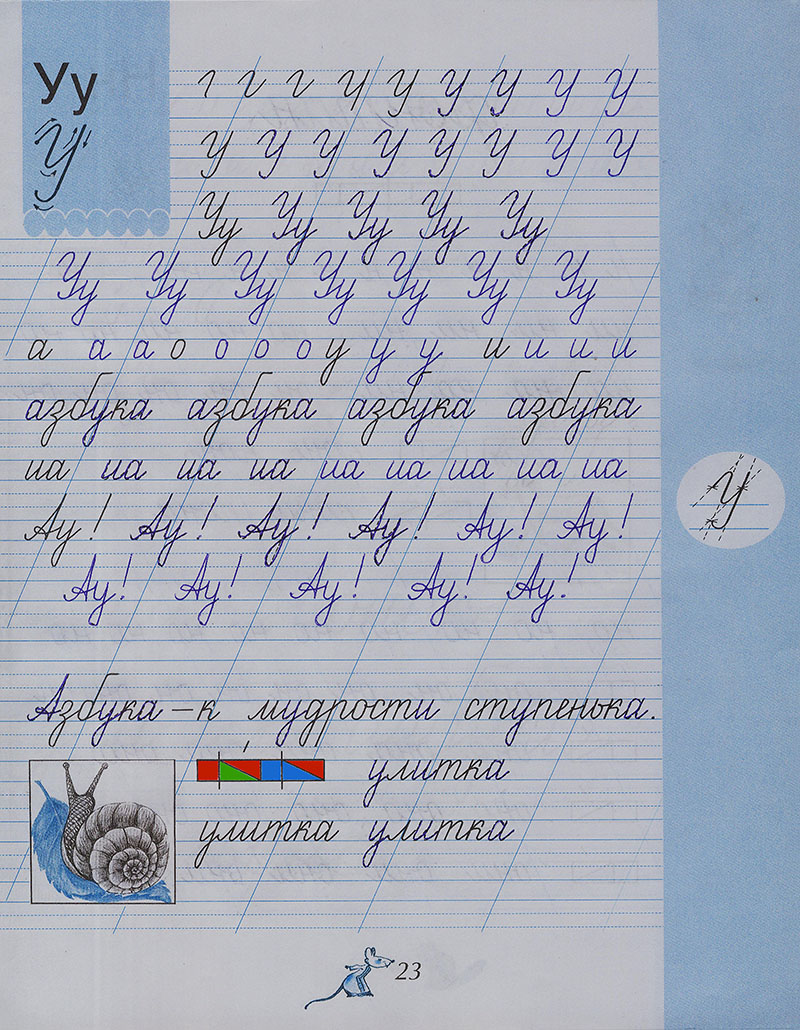 Уу
У
г г г у у у у у у
у у у у у у у у
Уу Уу Уу Уу Уу
Уу Уу Уу Уу Уу Уу Уу
а а а о о о о у у у и и и и
азбука азбука азбука азбука
иа иа иа иа иа иа иа иа иа
Ау! Ау! Ау! Ау! Ау! Ау!
Ау! Ау! Ау! Ау! Ау!
У
Азбука – к мудрости ступенька.
улитка
улитка улитка
23